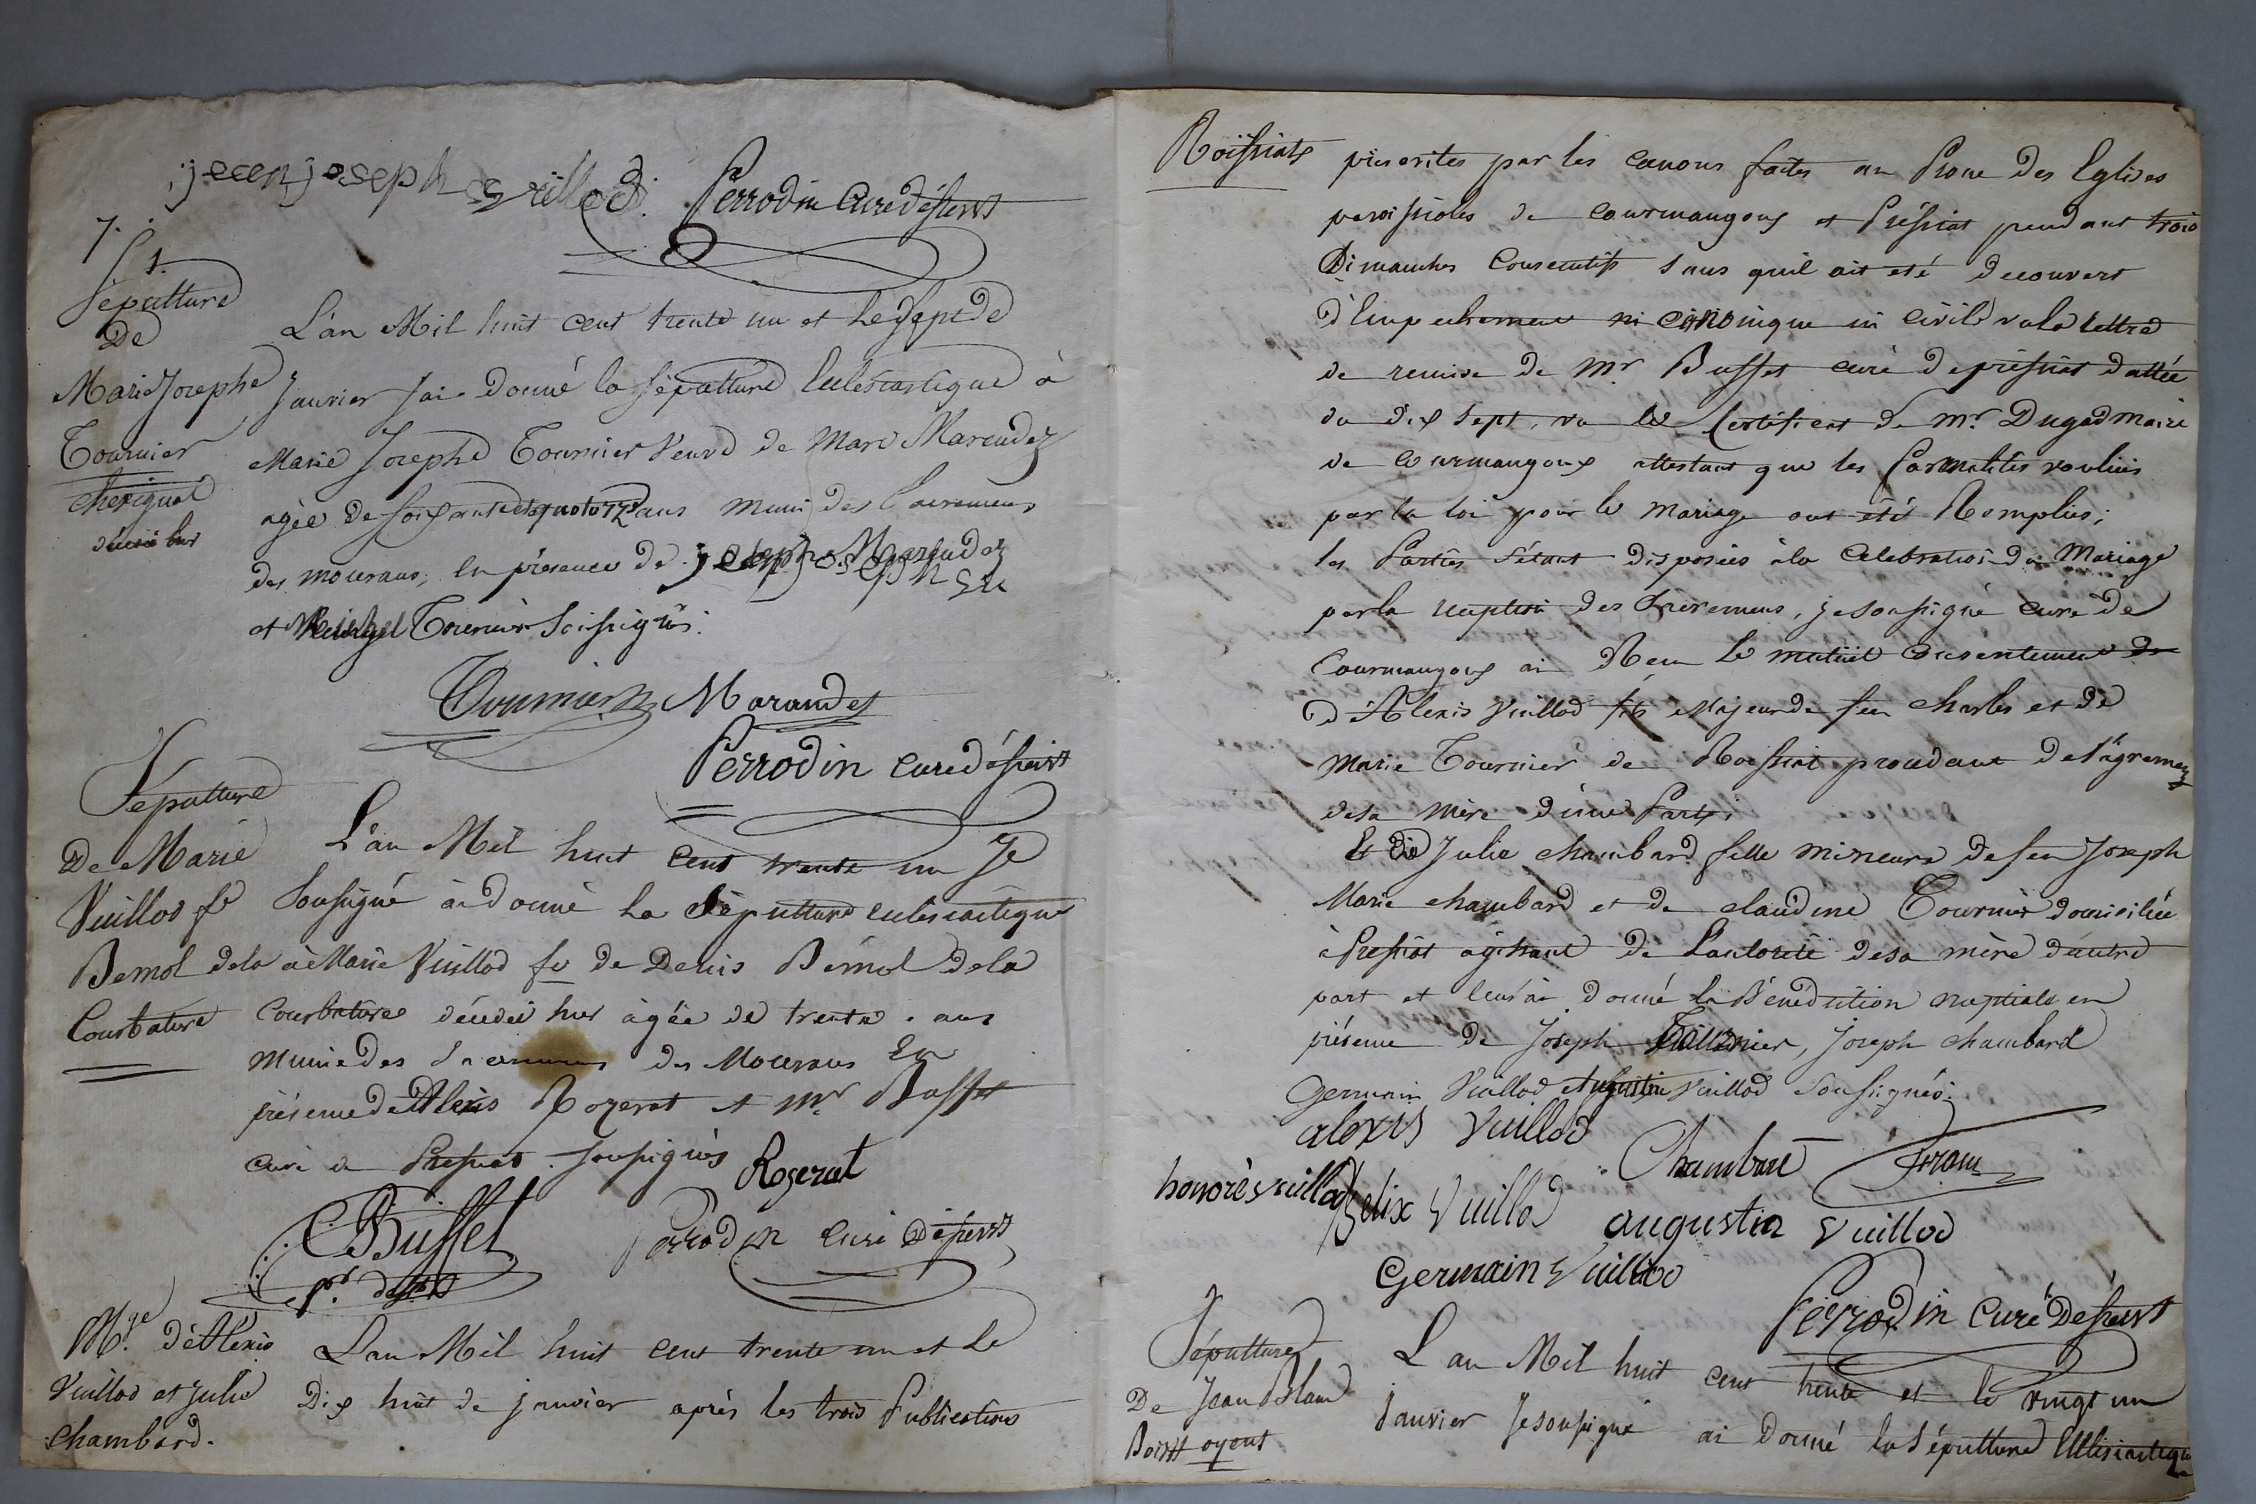 jecenjoseph vuillod. Perrodin curé désserv^t
7.
S.
Sépulture
de
Marie Josephe
Tournier
cheziguat
décédé hier
L'an Mil huit cent trente un et Le Sept de
Janvier J'ai donné la Sépulture Eclesiastique à
Marie Josephe Tournier Veuve de Marc Marendez
agée de Soixante et quatorze ans muni des Sacremens
des mourans, en présence de joseph Marendez
et Tournier Soussignés.
Tournier Marandet
Perrodin curé désserv^t
Sépulture
De Marie
Vuillod f^e
Bemol de la
Courbature
L'an Mil huit cent trente un Je
Soussigné ai donné La Sépulture eclesiastique
à Marie Vuillod f^e de Denis Bémol de la
Courbature décédée hier agée de trente ans
munie des Sacremens des Mourans En
présence d'Alexis Rozerat et M^r Buffet
curé de Pressiat. Soussignés
Rozerat
CBuffet
p^r dess^t
Perrodin curé désserv^t
M^ge d'Aléxis
Vuillod et Julie
Chambard.
L'an Mil huit cent trente un et Le
Dix huit de janvier après les trois Publications
Roissiat
prescrites par les canons faites au Prone des Eglises
paroissiales de Courmangoux et Préssiat pendant trois
Dimanches Consecutifs sans quil ait eté decouvert
d'Empechement ni canonique ni civile vu la lettre
de remise de M^r Buffet curé de préssiat dattée
du dix sept, vu le Certificat de M^r Dugad maire
de Courmangoux attestant que les formalités voulües
par la loi pour le mariage ont été Remplies;
les Parties s'étant disposées à la Celebration du Mariage
par la reception des Sacremens, je soussigné curé de
Courmangoux ai Reçu le mutüel consentement de
d'Alexis Vuillod fils Majeur de feu charles et de
Marie Tournier de Roissiat procedant de l'agrement
de sa mère d'une Part,
Et de Julie chambard fille mineure de feu Joseph
Marie chambard et de claudine Tournier domiciliée
à Pressiat agissant de L'autorité de sa mère d'autre
part et leur ai donné la Bénédiction nuptiale en
présence de Joseph Tournier, Joseph chambard
Germain Vuillod et Augustin Vuillod Soussignés.
alexis Vuillod
Chambard
honorè vuillod felix Vuillod augustin Vuillod
Germain Vuillod
Perrodin curé Desserv^t
Sépulture
De Jean
L'an Mil huit cent trente et le vingt un
janvier Je soussigné ai donné la Sépulture Ecclesiastique